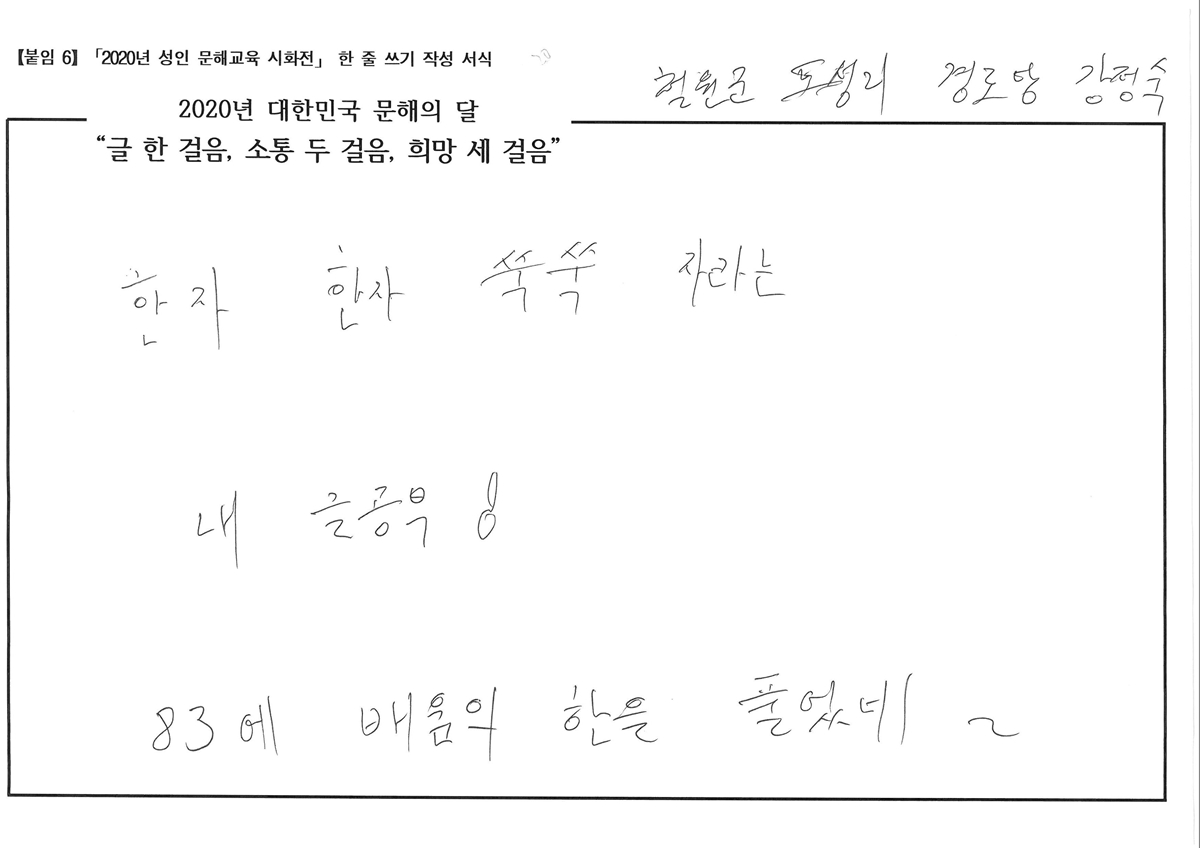 【붙임 6】 「2020년 성인 문해교육 시화전」 한 줄 쓰기 작성 서식
철원군 도성리 경로당 강정숙
2020년 대한민국 문해의 달
“글 한 걸음, 소통 두 걸음, 희망 세 걸음”
한자 한자 쑥쑥 자라는
내 글공부!
83에 배움의 한을 풀었네 ~